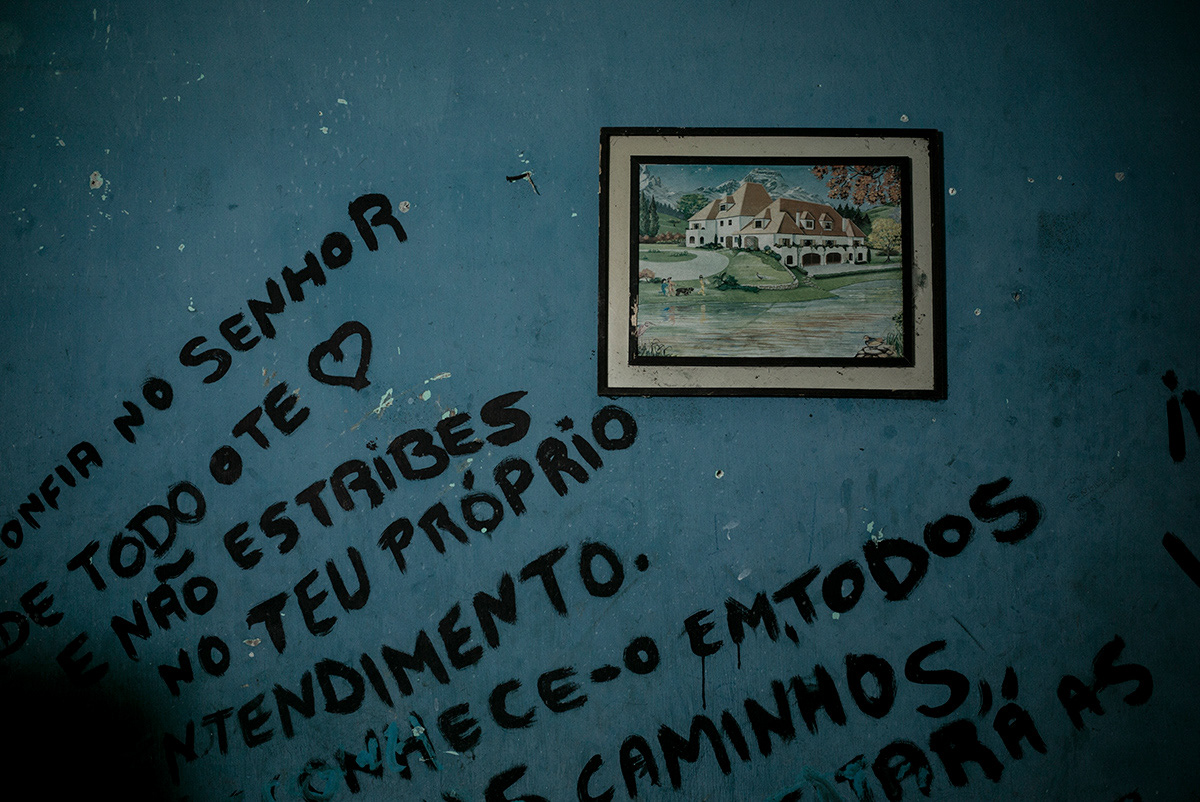 CONFIA NO SENHOR
DE TODO O TE ♡
E NÃO ESTRIBES
NO TEU PRÓPRIO
NTENDIMENTO.
CONHECE-O EM TODOS
CAMINHOS,
AS